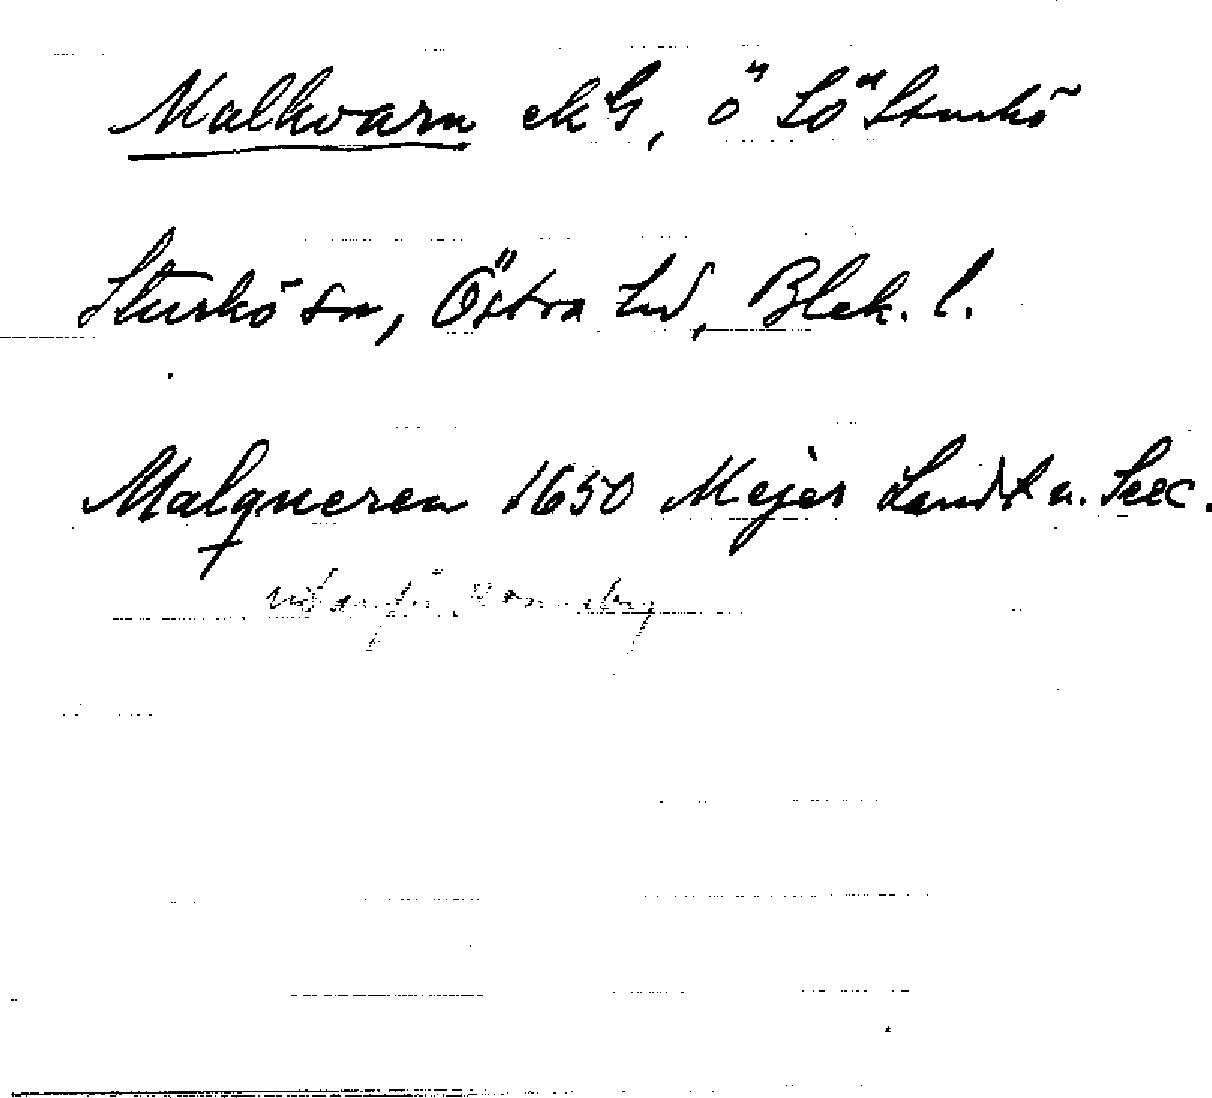 Malkvarn ekG, ö SÖ Sturkö
Sturkö sn, Östra hd, Blek. l.
Malqveren 1650 Mejer Landt u. See C.
utanför Ronneby